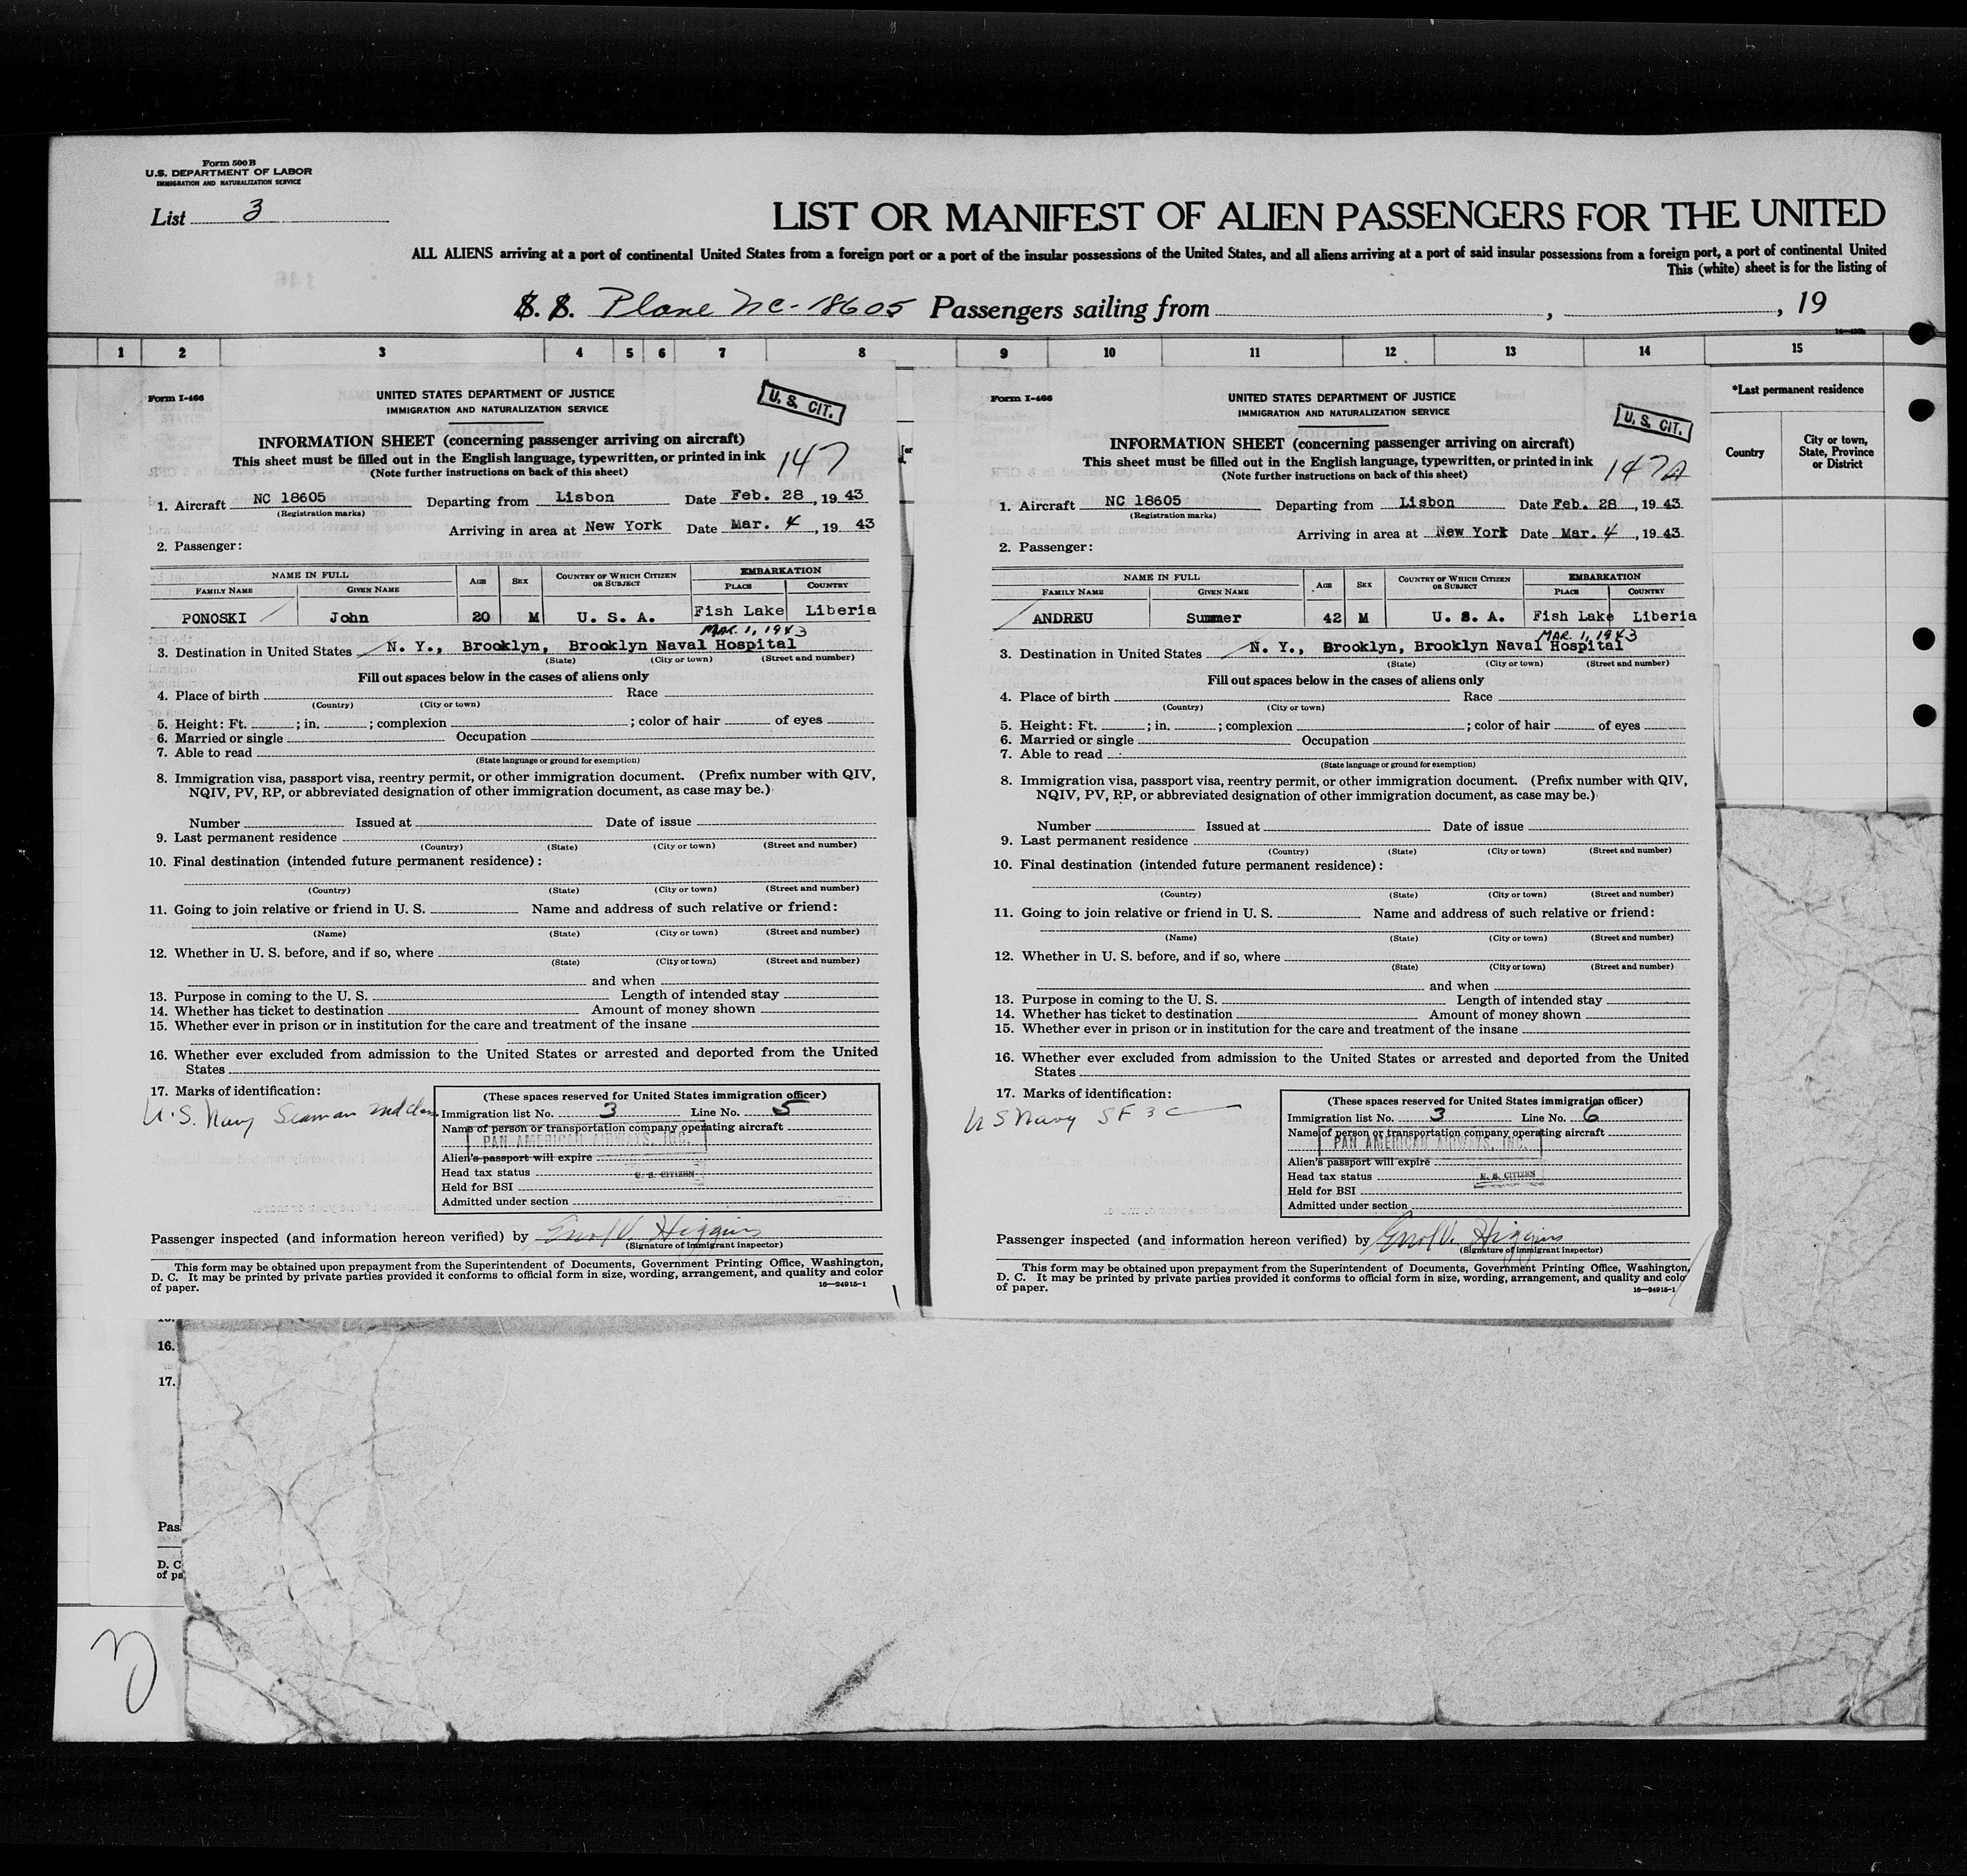 Form 500 B
U.S. DEPARTMENT OF LABOR
IMMIGRATION AND NATURALIZATION SERVICE
List 3
LIST OR MANIFEST OF ALIEN PASSENGERS FOR THE UNITED
ALL ALIENS arriving at a port of continental United States from a foreign port or a port of the insular possessions of the United States, and all aliens arriving at a port of said insular possessions from a foreign port, a port of continental United
This (white) sheet is for the listing of
S. S. Plane NC-18605 Passengers sailing from , , 19
1 2 3 4 5 6 7 8 9 10 11 12 13 14 15
*Last permanent residence
Country
City or town, State, Province or District
Form I-466
UNITED STATES DEPARTMENT OF JUSTICE
IMMIGRATION AND NATURALIZATION SERVICE
U. S. CIT.
INFORMATION SHEET (concerning passenger arriving on aircraft)
This sheet must be filled out in the English language, typewritten, or printed in ink
147
(Note further instructions on back of this sheet)
1. Aircraft NC 18605 Departing from Lisbon Date Feb. 28, 19 43
(Registration marks)
Arriving in area at New York Date Mar. 4, 19 43
2. Passenger:
NAME IN FULL AGE SEX COUNTRY OF WHICH CITIZEN OR SUBJECT EMBARKATION
FAMILY NAME GIVEN NAME PLACE COUNTRY
PONOSKI John 20 M U. S. A. Fish Lake Liberia
MAR. 1, 1943
3. Destination in United States N. Y., Brooklyn, Brooklyn Naval Hospital
(State) (City or town) (Street and number)
Fill out spaces below in the cases of aliens only
4. Place of birth Race
(Country) (City or town)
5. Height: Ft. ; in. ; complexion ; color of hair of eyes
6. Married or single Occupation
7. Able to read
(State language or ground for exemption)
8. Immigration visa, passport visa, reentry permit, or other immigration document. (Prefix number with QIV,
NQIV, PV, RP, or abbreviated designation of other immigration document, as case may be.)
Number Issued at Date of issue
9. Last permanent residence
(Country) (State) (City or town) (Street and number)
10. Final destination (intended future permanent residence):
(Country) (State) (City or town) (Street and number)
11. Going to join relative or friend in U. S. Name and address of such relative or friend:
(Name) (State) (City or town) (Street and number)
12. Whether in U. S. before, and if so, where
(State) (City or town) (Street and number)
and when
13. Purpose in coming to the U. S. Length of intended stay
14. Whether has ticket to destination Amount of money shown
15. Whether ever in prison or in institution for the care and treatment of the insane
16. Whether ever excluded from admission to the United States or arrested and deported from the United
States
17. Marks of identification:
U.S. Navy Seaman 2nd Class
(These spaces reserved for United States immigration officer)
Immigration list No. 3 Line No. 5
Name of person or transportation company operating aircraft
PAN AMERICAN AIRWAYS, INC.
Alien's passport will expire
Head tax status U. S. CITIZEN
Held for BSI
Admitted under section
Passenger inspected (and information hereon verified) by Errol V. Higgins
(Signature of immigrant inspector)
This form may be obtained upon prepayment from the Superintendent of Documents, Government Printing Office, Washington,
D. C. It may be printed by private parties provided it conforms to official form in size, wording, arrangement, and quality and color
of paper.
16—24915-1
Form I-466
UNITED STATES DEPARTMENT OF JUSTICE
IMMIGRATION AND NATURALIZATION SERVICE
U. S. CIT.
INFORMATION SHEET (concerning passenger arriving on aircraft)
This sheet must be filled out in the English language, typewritten, or printed in ink
147A
(Note further instructions on back of this sheet)
1. Aircraft NC 18605 Departing from Lisbon Date Feb. 28, 19 43
(Registration marks)
Arriving in area at New York Date Mar. 4, 19 43
2. Passenger:
NAME IN FULL AGE SEX COUNTRY OF WHICH CITIZEN OR SUBJECT EMBARKATION
FAMILY NAME GIVEN NAME PLACE COUNTRY
ANDREU Summer 42 M U. S. A. Fish Lake Liberia
MAR. 1, 1943
3. Destination in United States N. Y., Brooklyn, Brooklyn Naval Hospital
(State) (City or town) (Street and number)
Fill out spaces below in the cases of aliens only
4. Place of birth Race
(Country) (City or town)
5. Height: Ft. ; in. ; complexion ; color of hair of eyes
6. Married or single Occupation
7. Able to read
(State language or ground for exemption)
8. Immigration visa, passport visa, reentry permit, or other immigration document. (Prefix number with QIV,
NQIV, PV, RP, or abbreviated designation of other immigration document, as case may be.)
Number Issued at Date of issue
9. Last permanent residence
(Country) (State) (City or town) (Street and number)
10. Final destination (intended future permanent residence):
(Country) (State) (City or town) (Street and number)
11. Going to join relative or friend in U. S. Name and address of such relative or friend:
(Name) (State) (City or town) (Street and number)
12. Whether in U. S. before, and if so, where
(State) (City or town) (Street and number)
and when
13. Purpose in coming to the U. S. Length of intended stay
14. Whether has ticket to destination Amount of money shown
15. Whether ever in prison or in institution for the care and treatment of the insane
16. Whether ever excluded from admission to the United States or arrested and deported from the United
States
17. Marks of identification:
U S Navy SF 3 C
(These spaces reserved for United States immigration officer)
Immigration list No. 3 Line No. 6
Name of person or transportation company operating aircraft
PAN AMERICAN AIRWAYS, INC.
Alien's passport will expire
Head tax status U. S. CITIZEN
Held for BSI
Admitted under section
Passenger inspected (and information hereon verified) by Errol V. Higgins
(Signature of immigrant inspector)
This form may be obtained upon prepayment from the Superintendent of Documents, Government Printing Office, Washington,
D. C. It may be printed by private parties provided it conforms to official form in size, wording, arrangement, and quality and colo
of paper.
16—24915-1
16.
17.
Pas
D. C
of pa
3